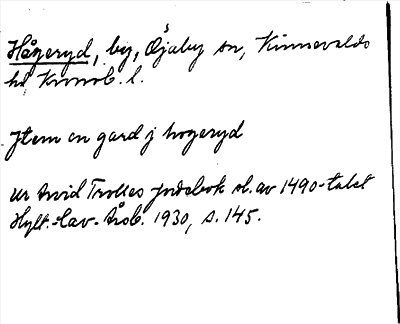 Hågeryd, by, Öjaby sn, Kinnevalds
hd Kronob. l.
Jtem en gard j hogeryd
Ur Arvid Trolles jordebok sl. av 1490-talet
Hylt.-Cav. Årsb. 1930, s. 145.